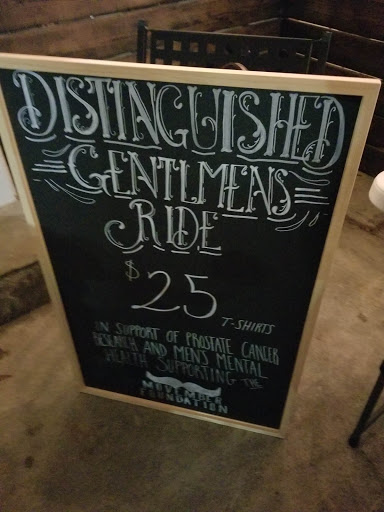 DISTINGUISHED
GENTLMENS
RIDE
$25
T-SHIRTS
IN SUPPORT OF PROSTATE CANCER
RESEARCH AND MEN'S MENTAL
HEALTH SUPPORTING THE
MOVEMBER
FOUNDATION